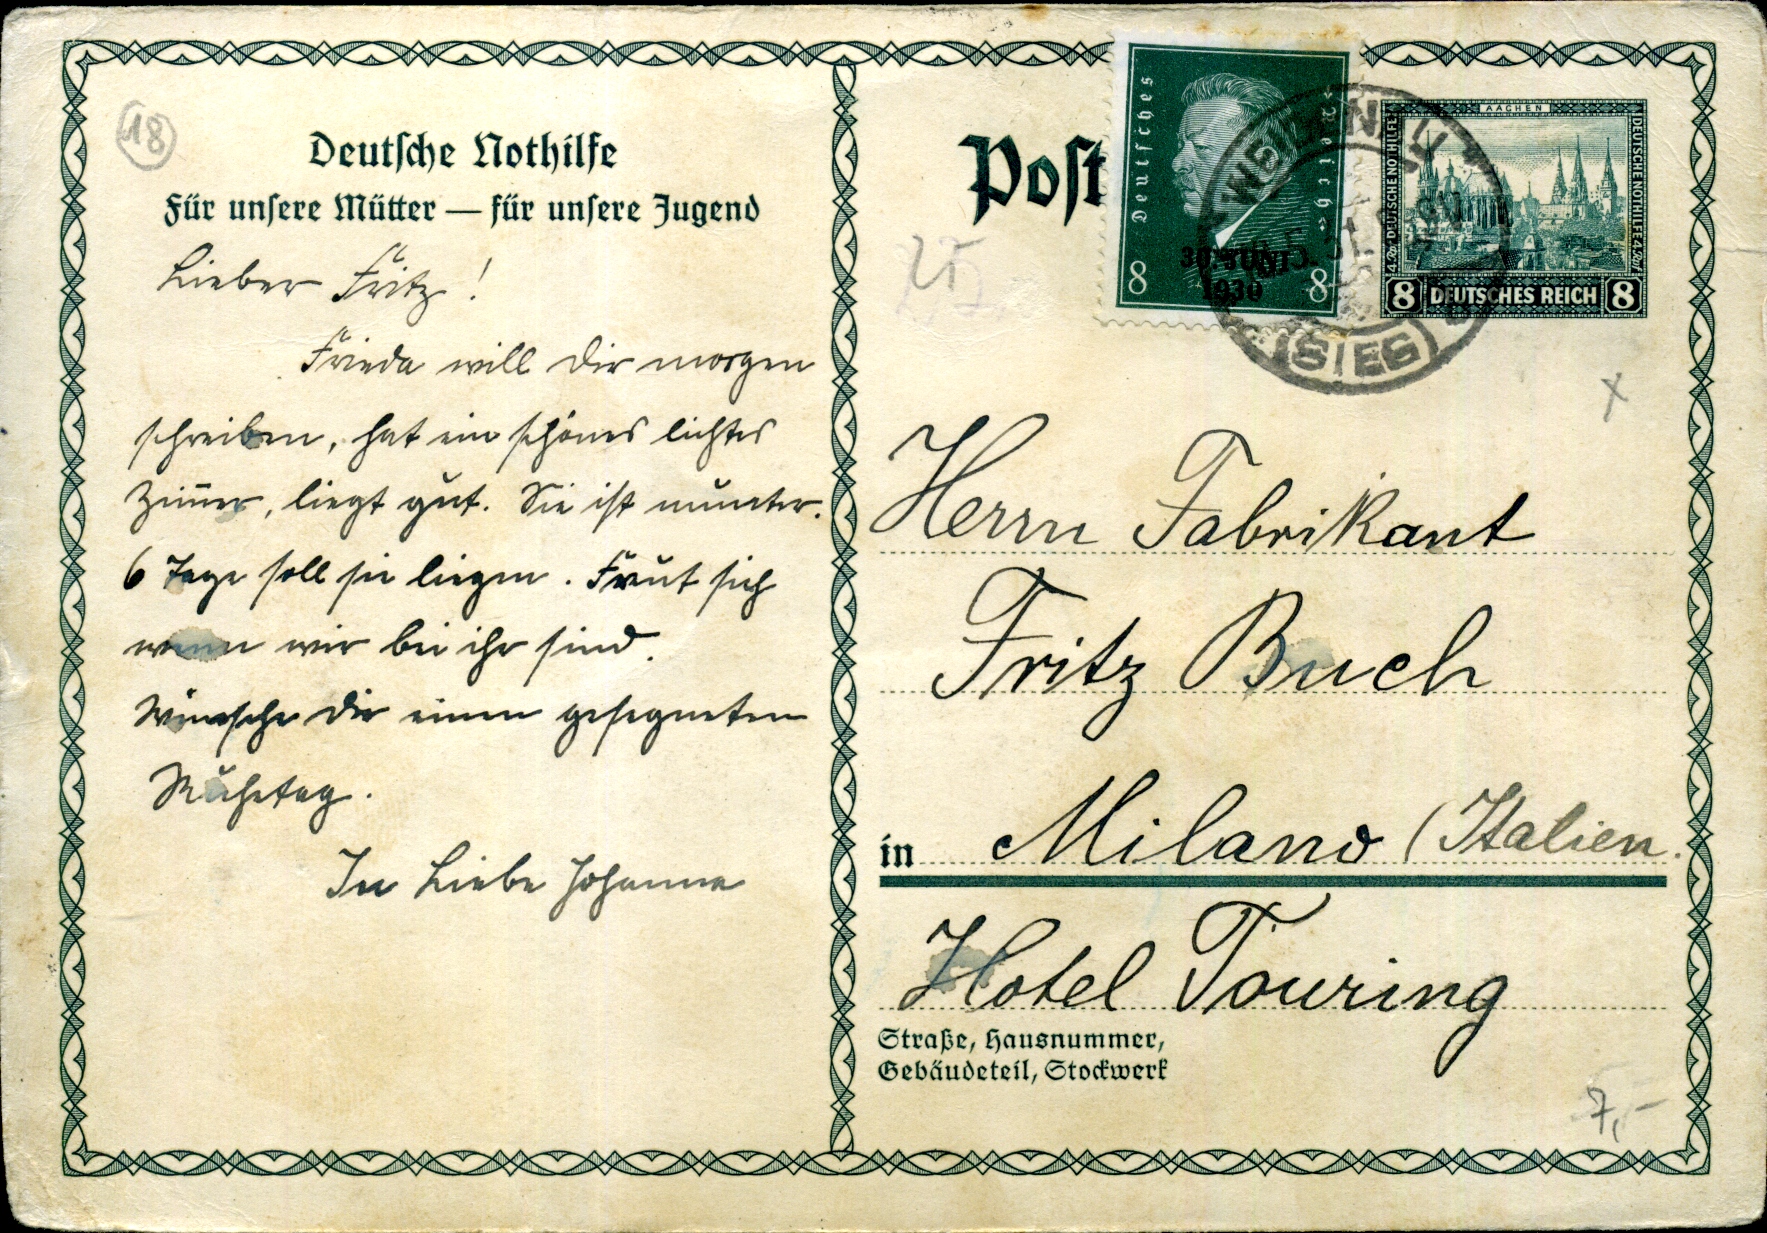 18
Deutsche Nothilfe
Für unsere Mütter — für unsere Jugend
Lieber Fritz!
Frieda will Dir morgen
schreiben, hat ein schönes lichtes
Zim̄er, liegt gut. Sie ist munter.
6 Tage soll sie liegen. Freut sich
wenn wir bei ihr sind.
Wünsche Dir einen gesegneten
Ruhetag.
In Liebe Johanna
Post
Deutsches Reich
30. JUNI
1930
8 8
WEIDENAU
(SIEG)
AACHEN
4 DEUTSCHE NOTHILFE
DEUTSCHE NOTHILFE 4
8 DEUTSCHES REICH 8
Herrn Fabrikant
Fritz Buch
in Milano (Italien
Hotel Touring
Straße, Hausnummer,
Gebäudeteil, Stockwerk
7,-